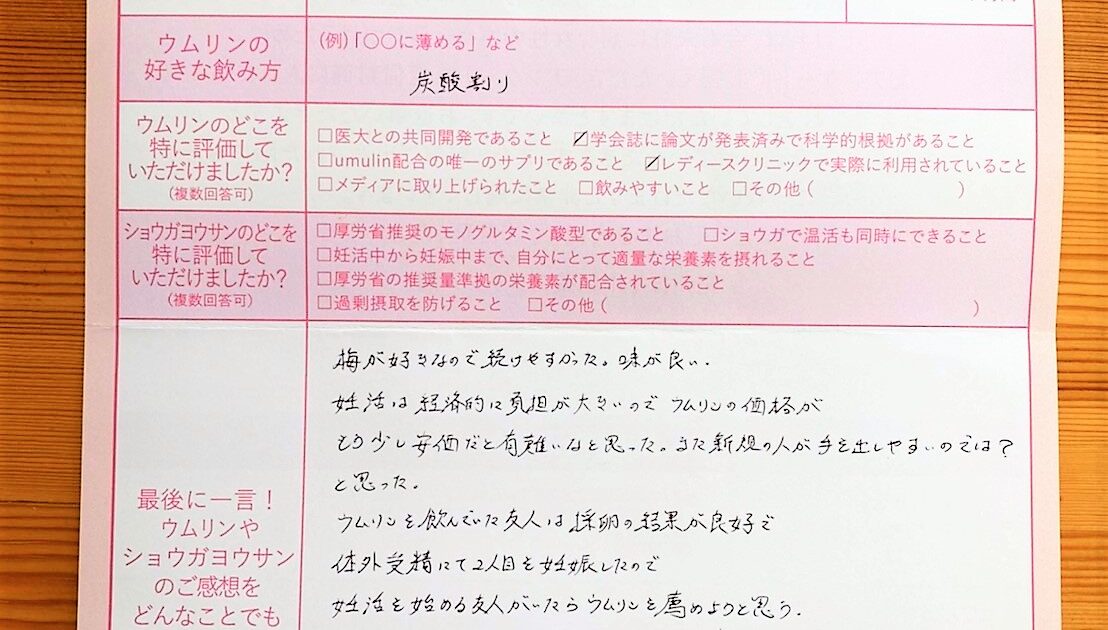 ウムリンの
好きな飲み方
(例)「〇〇に薄める」など
炭酸割り
ウムリンのどこを
特に評価して
いただけましたか?
(複数回答可)
□医大との共同開発であること ☑学会誌に論文が発表済みで科学的根拠があること
□umulin配合の唯一のサプリであること ☑レディースクリニックで実際に利用されていること
□メディアに取り上げられたこと □飲みやすいこと □その他( )
ショウガヨウサンのどこを
特に評価して
いただけましたか?
(複数回答可)
□厚労省推奨のモノグルタミン酸型であること □ショウガで温活も同時にできること
□妊活中から妊娠中まで、自分にとって適量な栄養素を摂れること
□厚労省の推奨量準拠の栄養素が配合されていること
□過剰摂取を防げること □その他( )
最後に一言!
ウムリンや
ショウガヨウサン
のご感想を
どんなことでも
梅が好きなので続けやすかった。味が良い.
妊活は経済的に負担が大きいのでウムリンの価格が
もう少し安価だと有難いなと思った。また新規の人が手を出しやすいのでは?
と思った.
ウムリンを飲んでいた友人は採卵の結果が良好で
体外受精にて2人目を妊娠したので
妊活を始める友人がいたらウムリンを薦めようと思う.